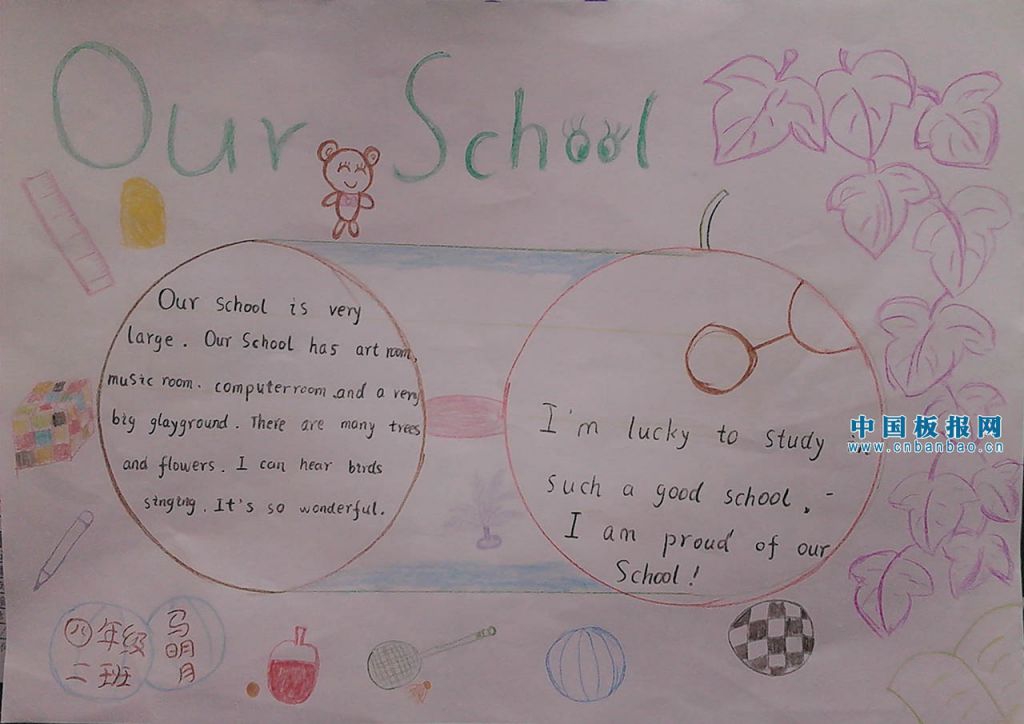 Our School
Our school is very
large. Our School has art room,
music room. computer room and a very
big playground. There are many trees
and flowers. I can hear birds
singing. It's so wonderful.
I'm lucky to study
such a good school.
I am proud of our
School!
中国板报网
www.cnbanbao.cn
年级
二班
马明月